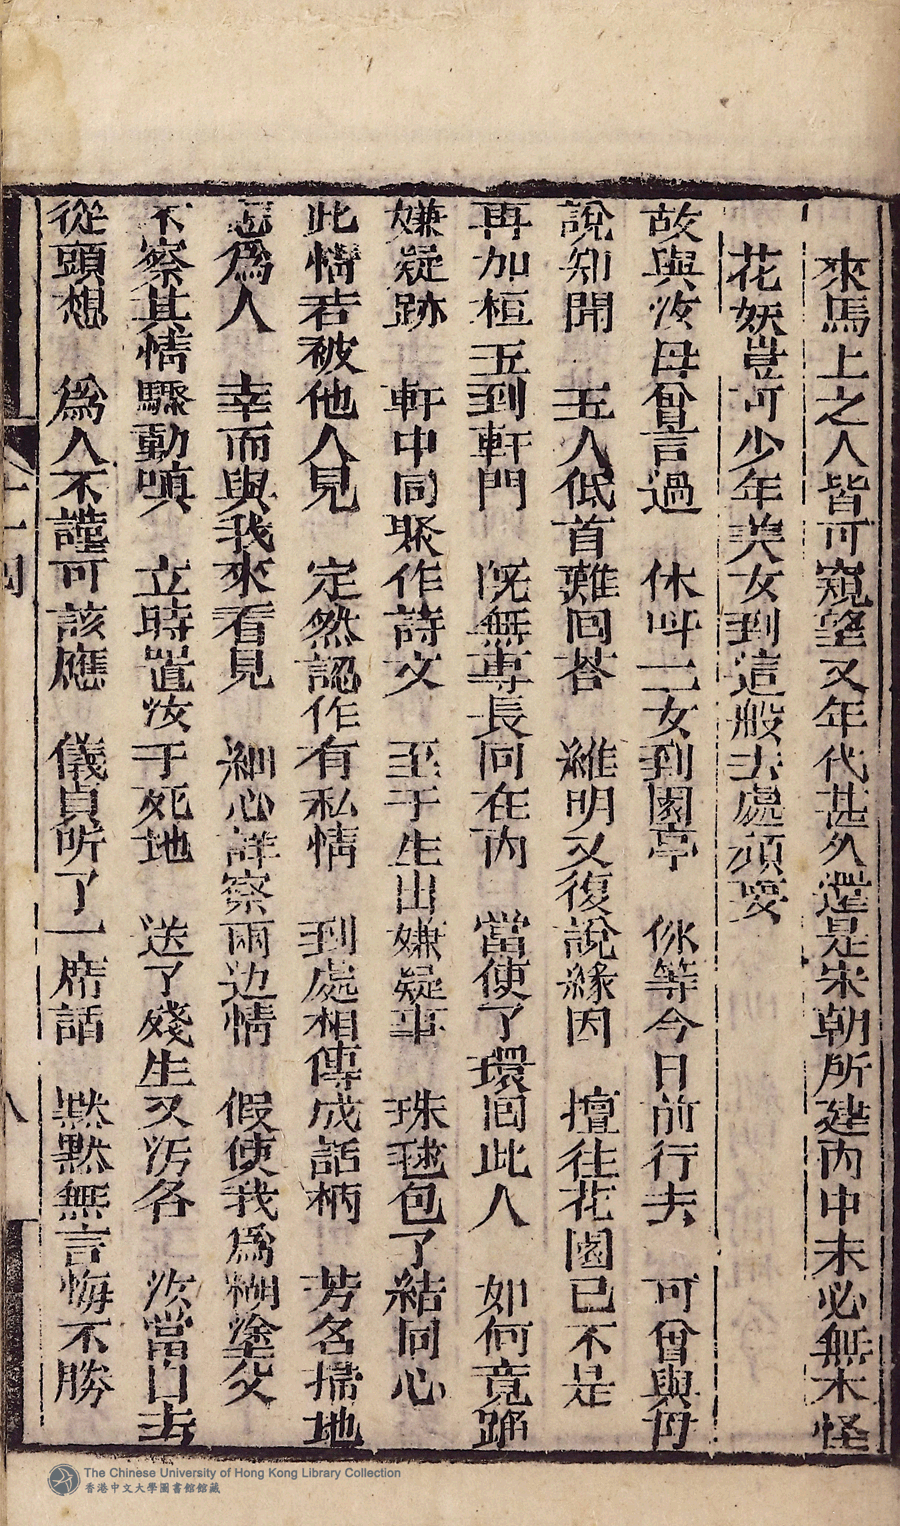 來馬上之人皆可窺望又年代甚久還是宋朝所建內中未必無木怪
花妖豈可少年美女到這般去處須要
故與汝母曾言過　休呌二女到園亭　你等今日前行去　可曾與母
說知聞　五人低首難回荅　維明又復說緣因　擅往花園已不是
再加桓五到軒門　既無專長同在內　當使了環回此人　如何竟踊
嫌疑跡　軒中同聚作詩文　至于生出嫌疑事　珠毬包了結同心
此情若被他人見　定然認作有私情　到處相傳成話柄　芳名掃地
怎爲人　幸而與我來看見　細心詳察兩边情　假使我爲糊塗父
不察其情驟動嗔　立時置汝于死地　送了殘生又汚名　汝當自去
從頭想　爲人不謹可該應　儀貞听了一席話　默默無言悔不勝
十四
八
The Chinese University of Hong Kong Library Collection
香港中文大學圖書館館藏